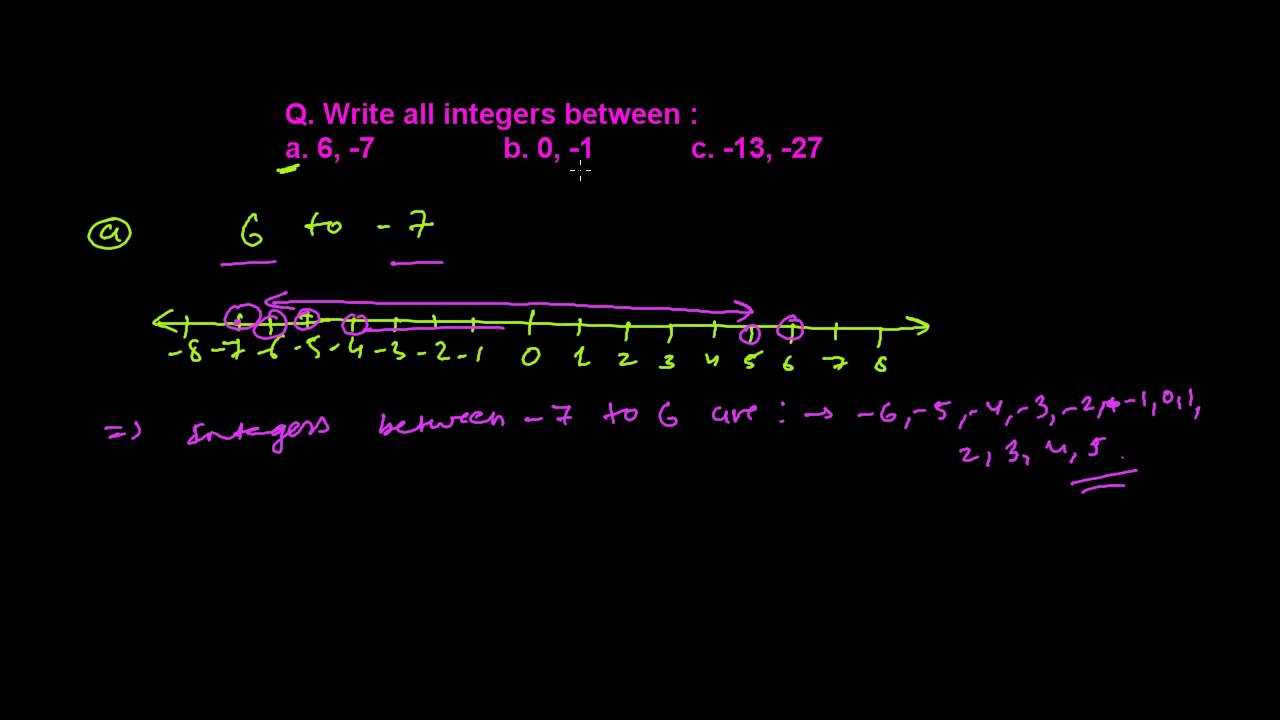 Q. Write all integers between :
a. 6, -7 b. 0, -1 c. -13, -27
a 6 to -7
-8 -7 -6 -5 -4 -3 -2 -1 0 1 2 3 4 5 6 7 8
=> Integers between -7 to 6 are : → -6, -5, -4, -3, -2, -1, 0, 1,
2, 3, 4, 5.